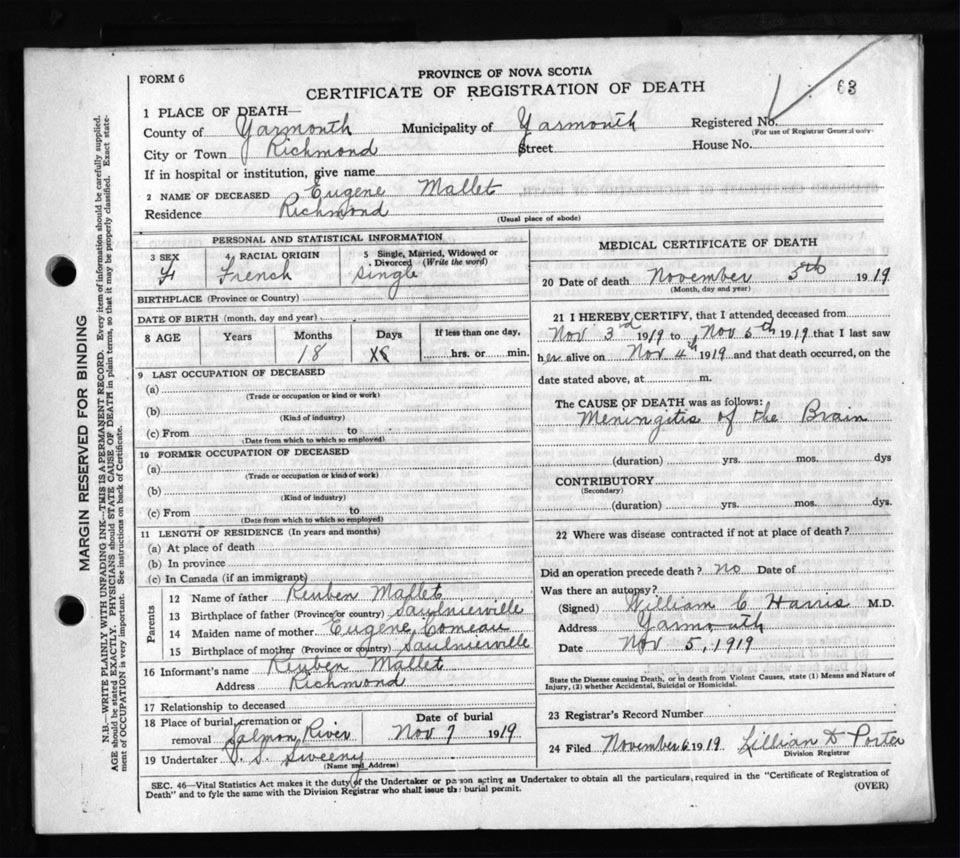 FORM 6
PROVINCE OF NOVA SCOTIA
CERTIFICATE OF REGISTRATION OF DEATH
63
1 PLACE OF DEATH—
County of Yarmouth Municipality of Yarmouth Registered No.
(For use of Registrar General only)
City or Town Richmond Street House No.
If in hospital or institution, give name
2 NAME OF DECEASED Eugene Mallet
Residence Richmond
(Usual place of abode)
PERSONAL AND STATISTICAL INFORMATION
3 SEX 4 RACIAL ORIGIN 5 Single, Married, Widowed or Divorced (Write the word)
F French Single
BIRTHPLACE (Province or Country)
DATE OF BIRTH (month, day and year)
8 AGE Years Months Days If less than one day,
18 hrs. or min.
9 LAST OCCUPATION OF DECEASED
(a)
(Trade or occupation or kind or work)
(b)
(Kind of industry)
(c) From to
(Date from which to which so employed)
10 FORMER OCCUPATION OF DECEASED
(a)
(Trade or occupation or kind of work)
(b)
(Kind of industry)
(c) From to
(Date from which to which so employed)
11 LENGTH OF RESIDENCE (In years and months)
(a) At place of death
(b) In province
(c) In Canada (if an immigrant)
Parents
12 Name of father Reuben Mallet
13 Birthplace of father (Province or country) Saulnierville
14 Maiden name of mother Eugene Comeau
15 Birthplace of mother (Province or country) Saulnierville
16 Informant's name Reuben Mallet
Address Richmond
17 Relationship to deceased
18 Place of burial, cremation or removal Salmon River Date of burial Nov 7 1919
19 Undertaker Sweeny
(Name and Address)
MEDICAL CERTIFICATE OF DEATH
20 Date of death November 5th 1919
(Month, day and year)
21 I HEREBY CERTIFY, that I attended deceased from
Nov 3rd 1919 to Nov 5th 1919 that I last saw
her alive on Nov 4th 1919 and that death occurred, on the
date stated above, at m.
The CAUSE OF DEATH was as follows:
Meningitis of the Brain
(duration) yrs. mos. dys
CONTRIBUTORY
(Secondary)
(duration) yrs. mos. dys.
22 Where was disease contracted if not at place of death?
Did an operation precede death? no Date of
Was there an autopsy?
(Signed) William C Harris M.D.
Address Yarmouth
Date Nov 5, 1919
State the Disease causing Death, or in death from Violent Causes, state (1) Means and Nature of
Injury, (2) whether Accidental, Suicidal or Homicidal.
23 Registrar's Record Number
24 Filed November 6 1919 Lillian D Porter
Division Registrar
SEC. 46—Vital Statistics Act makes it the duty of the Undertaker or person acting as Undertaker to obtain all the particulars, required in the "Certificate of Registration of
Death" and to fyle the same with the Division Registrar who shall issue the burial permit.
(OVER)
MARGIN RESERVED FOR BINDING
N.B.—WRITE PLAINLY WITH UNFADING INK—THIS IS A PERMANENT RECORD. Every item of information should be carefully supplied.
AGE should be stated EXACTLY. PHYSICIANS should STATE CAUSE OF DEATH in plain terms, so that it may be properly classified. Exact state-
ment of OCCUPATION is very important. See instructions on back of Certificate.